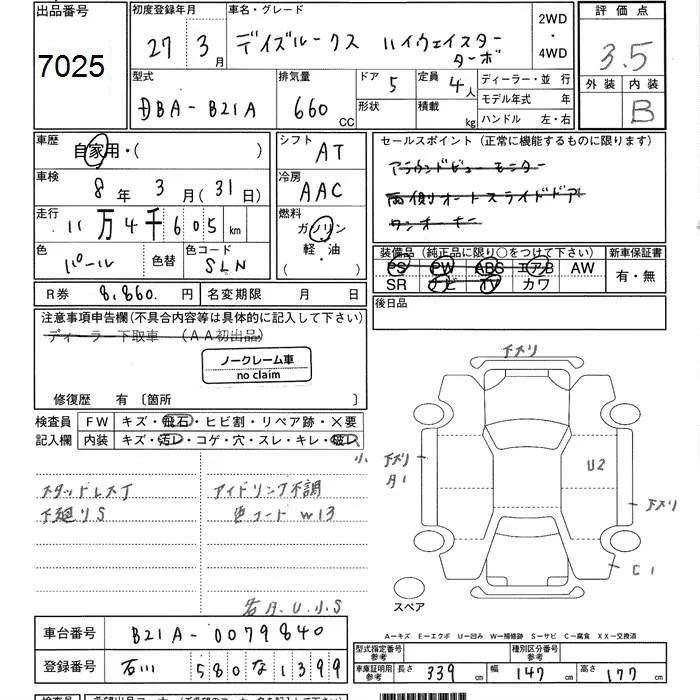 出品番号
7025
初度登録年月
27 3月
車名・グレード
デイズルークス ハイウェイスター
ターボ
2WD
・
4WD
評価点
3.5
外装 内装
B
型式
DBA-B21A
排気量
660 CC
ドア 5
形状
定員 4人
積載 kg
ディーラー・並行
モデル年式 年
ハンドル 左・右
車歴
自家用・( )
車検
8年 3月(31日)
走行
11万4千605km
色
パール
色替
色コード
SLN
シフト
AT
冷房
AAC
燃料
ガソリン
軽・油
( )
セールスポイント (正常に機能するものに限ります)
アラウンドビューモニター
両側オートスライドドア
ワンオーナー
装備品(純正品に限り○をつけて下さい)
PS PW ABS エアB AW
SR ナビ TV カワ
新車保証書
有・無
後日品
R券 8,860.円
名変期限 月 日
注意事項申告欄(不具合内容等は具体的に記入して下さい)
ディーラー下取車 (AA初出品)
ノークレーム車
no claim
修復歴 有〔箇所 〕
検査員
記入欄
FW キズ・飛石・ヒビ割・リペア跡・×要
内装 キズ・汚レ・コゲ・穴・スレ・キレ・破レ
小
スタッドレスT
下廻りS
アイドリング不調
色コード W13
若A.U.小S
下スリ
下スリ
A1
U2
下スリ
C1
スペア
A─キズ E─エクボ U─凹み W─補修跡 S─サビ C─腐食 XX─交換済
車台番号
B21A-0079840
登録番号
石川 580な1399
型式指定番号
参考
種別区分番号
参考
車庫証明用
参考
長さ 339cm
幅 147cm
高さ 177cm